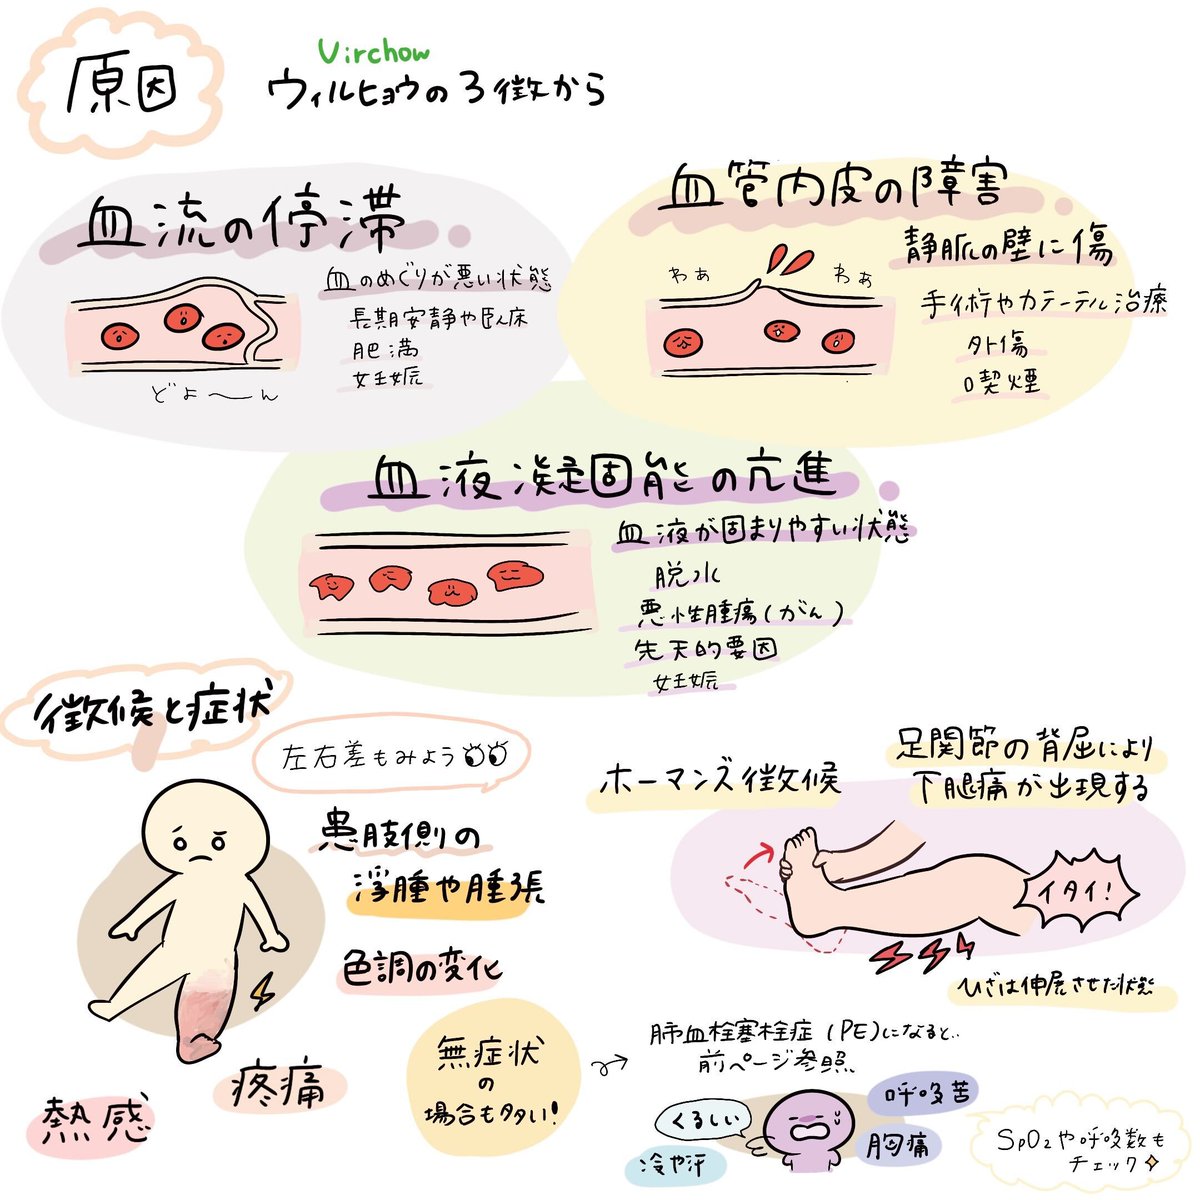 原因
Virchow
ウィルヒョウの3徴から
血流の停滞
血のめぐりが悪い状態
長期安静や臥床
肥満
妊娠
どよ〜ん
血管内皮の障害
静脈の壁に傷
わぁ
わぁ
手術やカテーテル治療
外傷
喫煙
血液凝固能の亢進
血液が固まりやすい状態
脱水
悪性腫瘍(がん)
先天的要因
妊娠
徴候と症状
左右差もみよう
患肢側の
浮腫や腫張
色調の変化
疼痛
熱感
無症状
の
場合も多い!
ホーマンズ徴候
足関節の背屈により
下腿痛が出現する
イタイ!
ひざは伸展させた状態
肺血栓塞栓症(PE)になると..
前ページ参照
呼吸苦
くるしい
胸痛
冷や汗
SpO2や呼吸数も
チェック